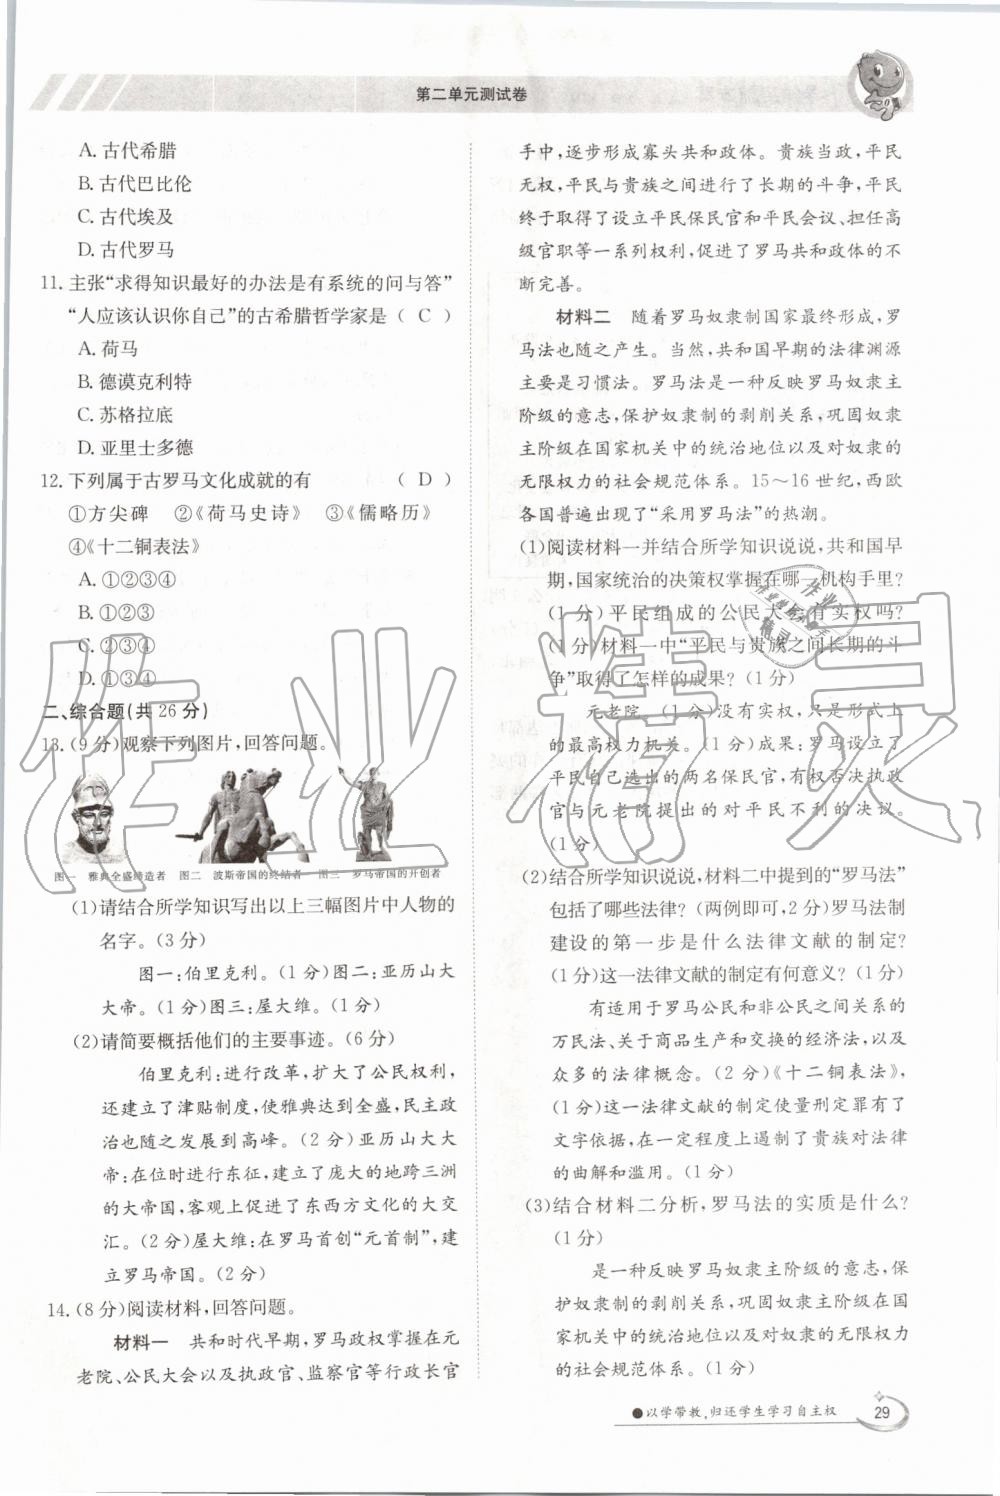 第二单元测试卷
A.古代希腊
B.古代巴比伦
C.古代埃及
D.古代罗马
11.主张“求得知识最好的办法是有系统的问与答”
“人应该认识你自己”的古希腊哲学家是（ C ）
A.荷马
B.德谟克利特
C.苏格拉底
D.亚里士多德
12.下列属于古罗马文化成就的有 （ D ）
①方尖碑 ②《荷马史诗》 ③《儒略历》
④《十二铜表法》
A.①②③④
B.①②③
C.②③④
D.③④
二、综合题(共 26 分)
13.(9 分)观察下列图片,回答问题。
图一 雅典全盛缔造者 图二 波斯帝国的终结者 图三 罗马帝国的开创者
(1)请结合所学知识写出以上三幅图片中人物的
名字。(3 分)
图一:伯里克利。(1 分)图二:亚历山大
大帝。(1 分)图三:屋大维。(1分)
(2)请简要概括他们的主要事迹。(6 分)
伯里克利:进行改革,扩大了公民权利,
还建立了津贴制度,使雅典达到全盛,民主政
治也随之发展到高峰。(2 分)亚历山大大
帝:在位时进行东征,建立了庞大的地跨三洲
的大帝国,客观上促进了东西方文化的大交
汇。(2分)屋大维:在罗马首创“元首制”,建
立罗马帝国。(2 分)
14.(8 分)阅读材料,回答问题。
材料一 共和时代早期,罗马政权掌握在元
老院、公民大会以及执政官、监察官等行政长官
手中,逐步形成寡头共和政体。贵族当政,平民
无权,平民与贵族之间进行了长期的斗争,平民
终于取得了设立平民保民官和平民会议、担任高
级官职等一系列权利,促进了罗马共和政体的不
断完善。
材料二 随着罗马奴隶制国家最终形成,罗
马法也随之产生。当然,共和国早期的法律渊源
主要是习惯法。罗马法是一种反映罗马奴隶主
阶级的意志,保护奴隶制的剥削关系,巩固奴隶
主阶级在国家机关中的统治地位以及对奴隶的
无限权力的社会规范体系。15～16 世纪,西欧
各国普遍出现了“采用罗马法”的热潮。
(1)阅读材料一并结合所学知识说说,共和国早
期,国家统治的决策权掌握在哪一机构手里?
(1 分)平民组成的公民大会有实权吗?
(1 分)材料一中“平民与贵族之间长期的斗
争”取得了怎样的成果?(1 分)
元老院。(1 分)没有实权,只是形式上
的最高权力机关。(1分)成果:罗马设立了
平民自己选出的两名保民官,有权否决执政
官与元老院提出的对平民不利的决议。
(1分)
(2)结合所学知识说说,材料二中提到的“罗马法”
包括了哪些法律?(两例即可,2 分)罗马法制
建设的第一步是什么法律文献的制定?
(1 分)这一法律文献的制定有何意义?(1 分)
有适用于罗马公民和非公民之间关系的
万民法、关于商品生产和交换的经济法,以及
众多的法律概念。(2 分)《十二铜表法》,
(1分)这一法律文献的制定使量刑定罪有了
文字依据,在一定程度上遏制了贵族对法律
的曲解和滥用。(1 分)
(3)结合材料二分析,罗马法的实质是什么?
(1 分)
是一种反映罗马奴隶主阶级的意志,保
护奴隶制的剥削关系,巩固奴隶主阶级在国
家机关中的统治地位以及对奴隶的无限权力
的社会规范体系。(1 分)
●以学带教,归还学生学习自主权 29
作业精灵